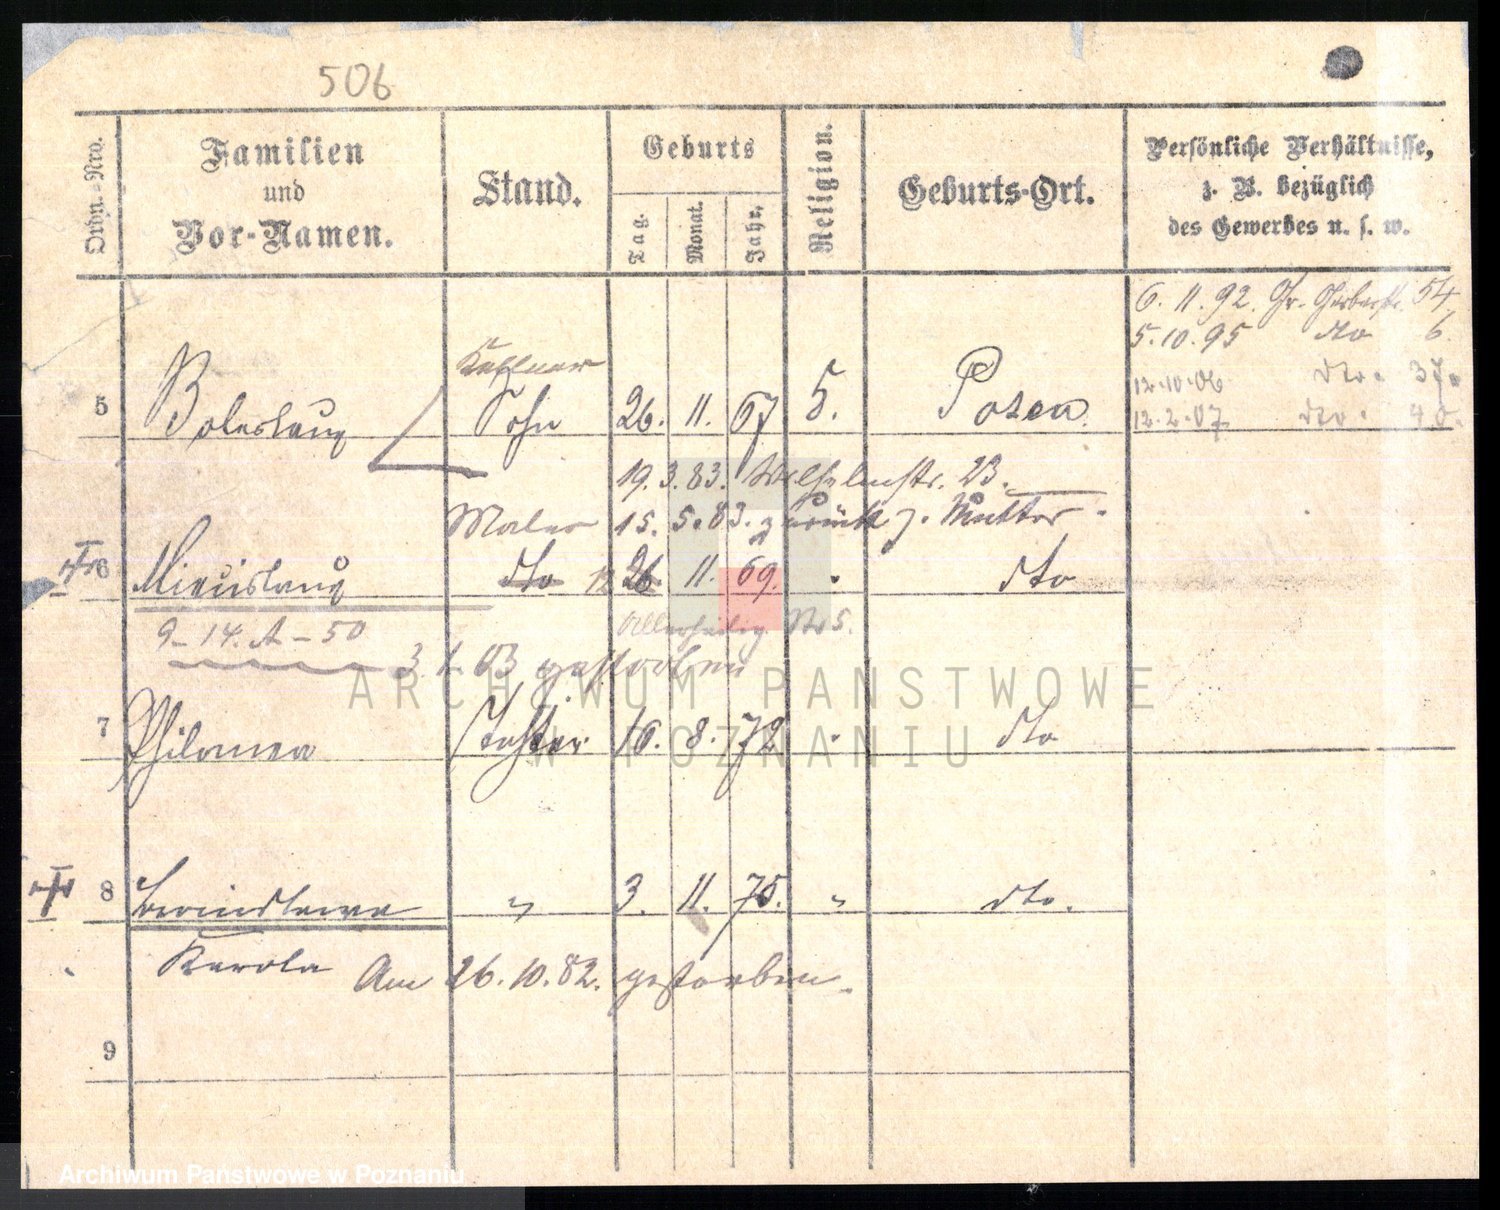 506
Ordn.-Nro.
Familien
und
Vor-Namen.
Stand.
Geburts
Tag.
Monat.
Jahr.
Religion.
Geburts-Ort.
Persönliche Verhältnisse,
z. B. bezüglich
des Gewerbes u. s. w.
6. 11. 92. Gr. Gerberstr. 54
5. 10. 95 dto 6.
12.10.06 dto. 37.
12.2.07 dto. 40.
Kellner
5 Boleslaus Sohn 26. 11. 67 Posen.
19. 3. 83. Wilhelmstr. 23.
Maler 15. 5. 83. zurück z. Mutter.
6 Miecislaus dto 12 26. 11. 69. " dto
9-14. A-50
Allerheilig Str 5.
3. 1. 03 gestorben
7 Philomena Tochter 16. 8. 72 " dto
8 Bronislawa " 3. 11. 75. " dto.
Karola Am 26. 10. 82. gestorben.
9
ARCHIWUM PANSTWOWE
W POZNANIU
Archiwum Państwowe w Poznaniu